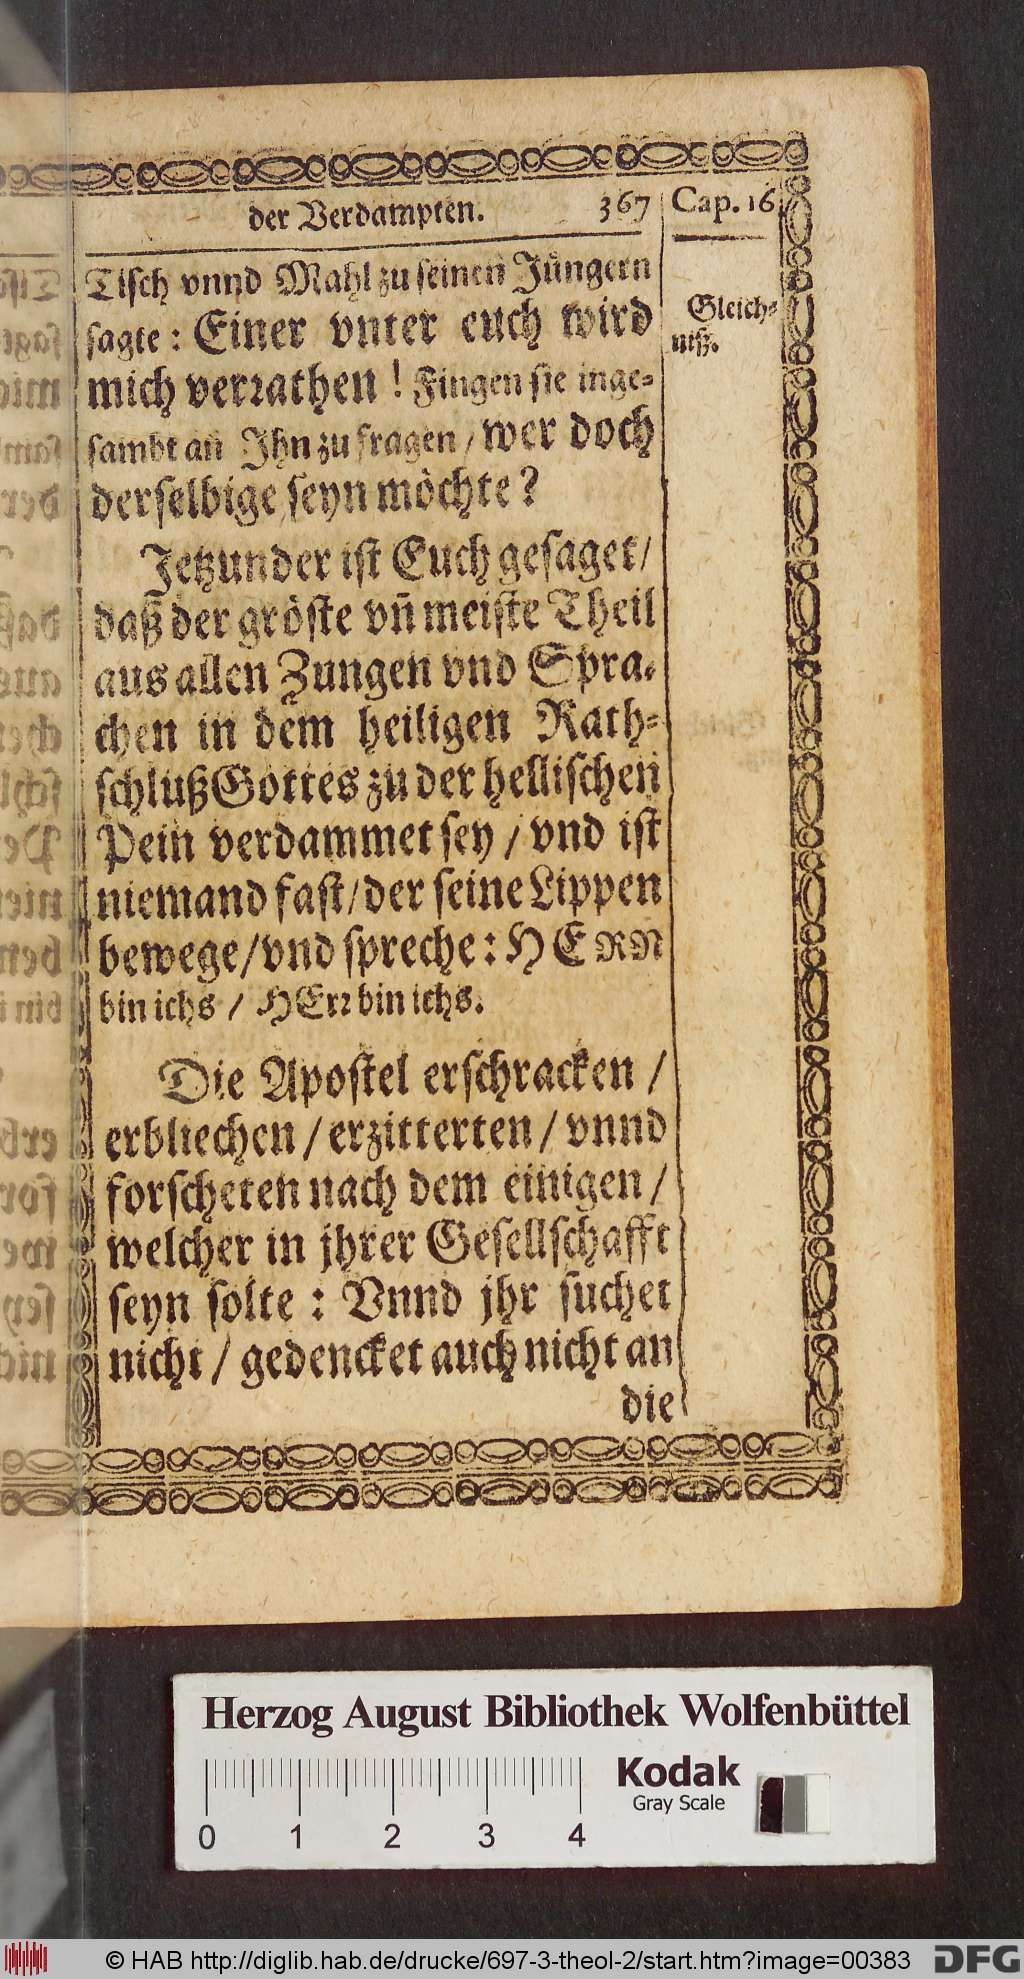 der Verdampten. 367 Cap. 16
Tisch vnnd Mahl zu seinen Jüngern
sagte: Einer vnter euch wird
mich verꝛathen! Fingen sie inge-
sambt an Ihn zu fragen/ wer doch
derselbige seyn möchte?
Gleich-
niß.
Jetzunder ist Euch gesaget/
daß der gröste vn̄ meiste Theil
aus allen Zungen vnd Spra-
chen in dem heiligen Rath-
schluß Gottes zu der hellischen
Pein verdammet sey/ vnd ist
niemand fast/ der seine Lippen
bewege/ vnd spreche: HERR
bin ichs/ HErꝛ bin ichs.
Die Apostel erschracken/
erbliechen/ erzitterten/ vnnd
forscheten nach dem einigen/
welcher in jhrer Gesellschafft
seyn solte: Vnnd jhr suchet
nicht/ gedencket auch nicht an
die
Herzog August Bibliothek Wolfenbüttel
Kodak
Gray Scale
0 1 2 3 4
© HAB http://diglib.hab.de/drucke/697-3-theol-2/start.htm?image=00383 DFG